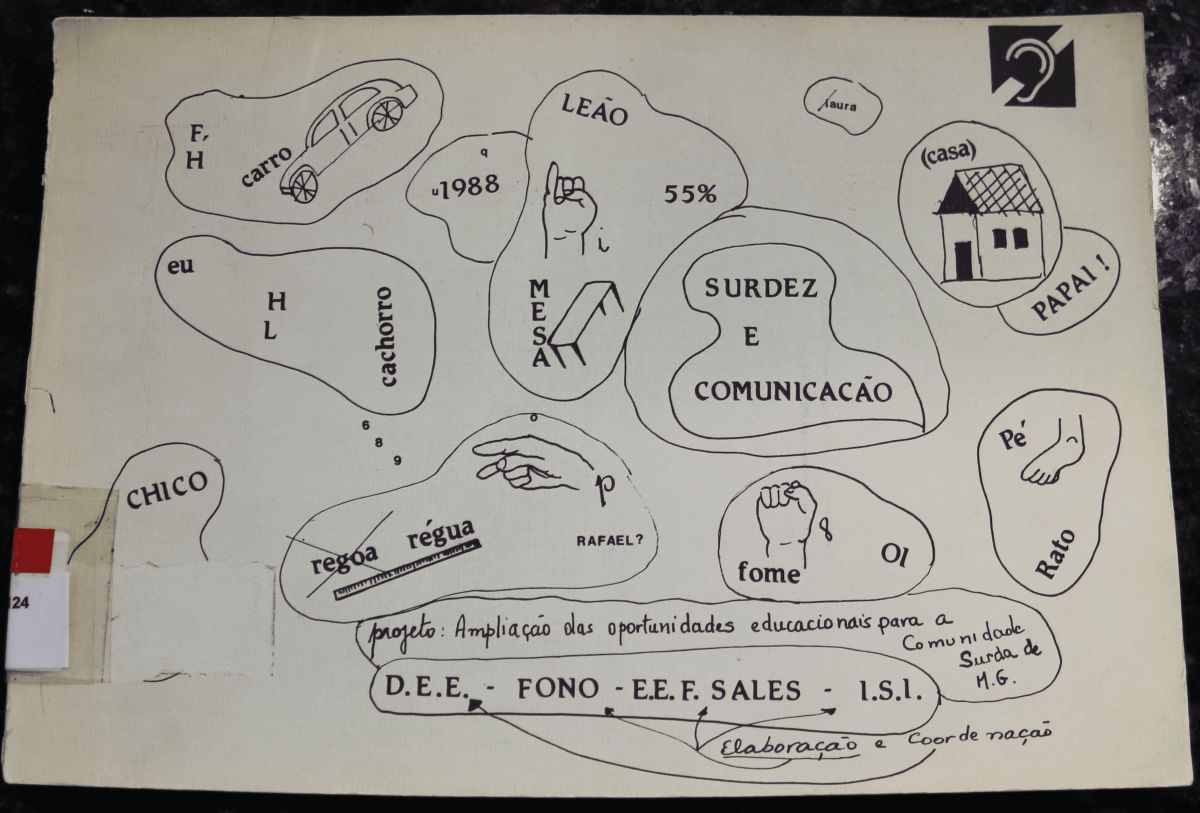 F,
H
carro
q
u1988
LEÃO
55%
i
MESA
laura
(casa)
PAPAI!
eu
H
L
cachorro
SURDEZ
E
COMUNICACÃO
6
8
9
CHICO
o
p
regoa régua
RAFAEL?
8
fome
OI
Pé
Rato
projeto: Ampliação das oportunidades educacionais para a
Comunidade
Surda de
M.G.
D.E.E. - FONO - E.E. F. SALES - I.S.I.
Elaboração e Coordenação
24